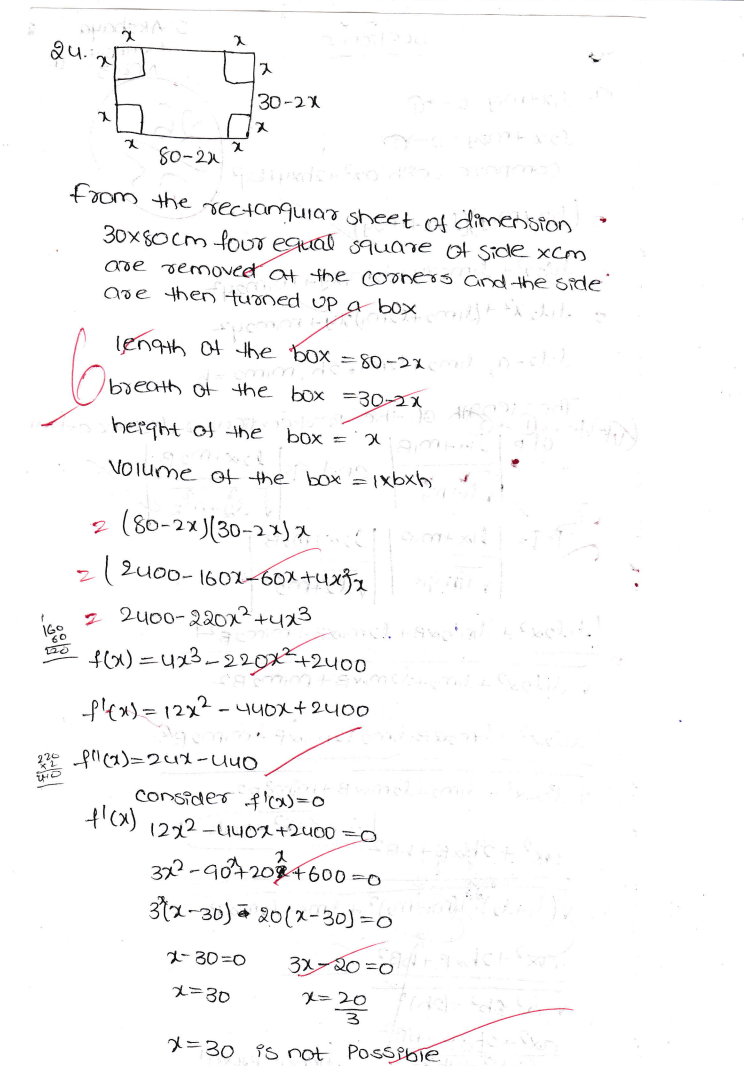 24.
x x
x x
30-2x
x x
x x
80-2x
from the rectangular sheet of dimension
30x80cm four equal square of side xcm
are removed at the corners and the side
are then turned up a box
6
length of the box = 80-2x
breath of the box = 30-2x
height of the box = x
Volume of the box = lxbxh
= (80-2x)(30-2x)x
= (2400-160x-60x+4x²)x
= 2400-220x²+4x³
160
60
220
f(x) = 4x³-220x²+2400
f'(x) = 12x² - 440x+2400
220
x2
440
f''(x)=24x-440
consider f'(x)=0
f'(x) 12x²-440x+2400=0
3x²-90x+20x+600=0
3x(x-30)-20(x-30)=0
x-30=0 3x-20=0
x=30 x=20/3
x=30 is not Possible